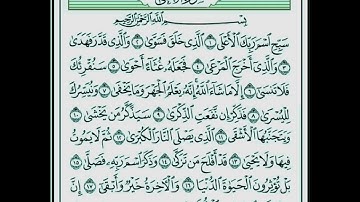 بِسْمِ اللَّهِ الرَّحْمَٰنِ الرَّحِيمِ
سَبِّحِ اسْمَ رَبِّكَ الْأَعْلَى ۝١ الَّذِي خَلَقَ فَسَوَّىٰ ۝٢ وَالَّذِي قَدَّرَ فَهَدَىٰ
۝٣ وَالَّذِي أَخْرَجَ الْمَرْعَىٰ ۝٤ فَجَعَلَهُ غُثَاءً أَحْوَىٰ ۝٥ سَنُقْرِئُكَ
فَلَا تَنْسَىٰ ۝٦ إِلَّا مَا شَاءَ اللَّهُ إِنَّهُ يَعْلَمُ الْجَهْرَ وَمَا يَخْفَىٰ ۝٧ وَنُيَسِّرُكَ
لِلْيُسْرَىٰ ۝٨ فَذَكِّرْ إِنْ نَفَعَتِ الذِّكْرَىٰ ۝٩ سَيَذَّكَّرُ مَنْ يَخْشَىٰ ۝١٠
وَيَتَجَنَّبُهَا الْأَشْقَى ۝١١ الَّذِي يَصْلَى النَّارَ الْكُبْرَىٰ ۝١٢ ثُمَّ لَا يَمُوتُ
فِيهَا وَلَا يَحْيَىٰ ۝١٣ قَدْ أَفْلَحَ مَنْ تَزَكَّىٰ ۝١٤ وَذَكَرَ اسْمَ رَبِّهِ فَصَلَّىٰ ۝١٥
بَلْ تُؤْثِرُونَ الْحَيَاةَ الدُّنْيَا ۝١٦ وَالْآخِرَةُ خَيْرٌ وَأَبْقَىٰ ۝١٧ إِنَّ